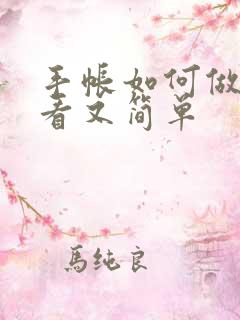 手帐如何做
看又简单
馬纯良